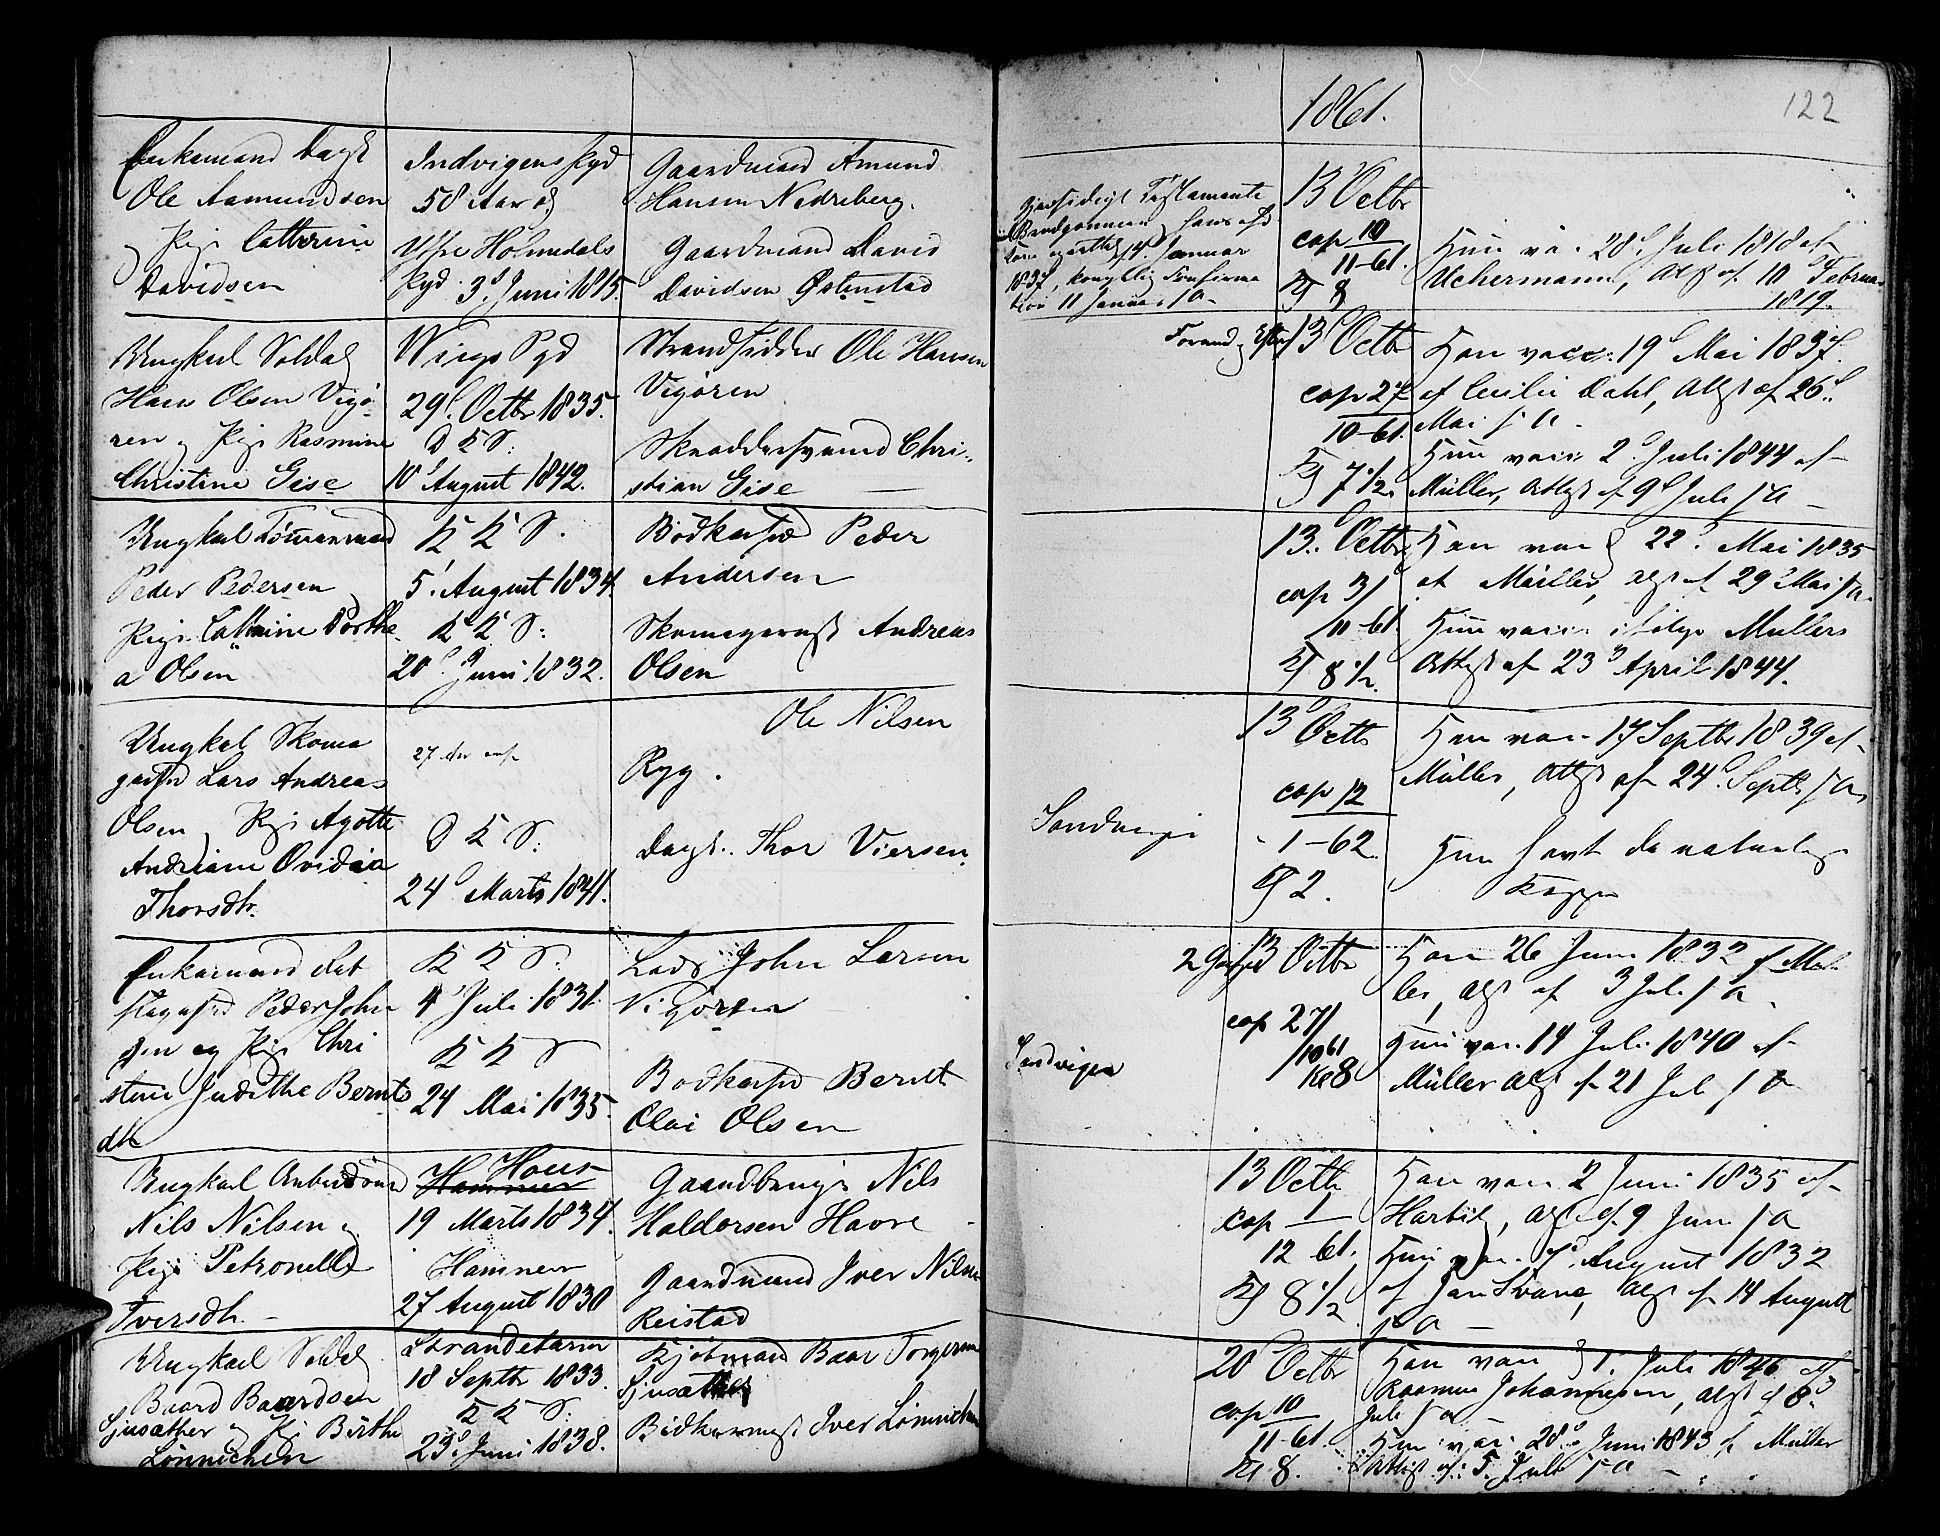 122
1861.
Enkemand Dagk
Ole Aamundsen
og Pige Catherine
Davidsen
Indvigens Pgd
58 Aar og
Yttre Holmedals
Pgd. 3d Juni 1815.
Gaardmand Amund
Hansen Nedreberg.
Gaardmand David
Davidsen Østenstad
Gjensidigt Testamente
Januar
1837,
11 Januar s A.
13 Octbr
cop 10
11-61.
8
Hun vac. 28d Juli 1818 af
Uchermann, Att af 10 Februar
1819.
Ungkarl Soldat
Hans Olsen Vigø-
ren og Pige Rasmine
Christine Gise
Wigs Pgd
29d Octbr 1835.
D K S:
10d August 1842.
Strandsidder Ole Hansen
Vigøren
Skræddersvend Chri-
stian Gise
13d Octb
cop 27
10-61.
7 1/2
Han vacc: 19d Mai 1837.
af Cecilie Dahl, Attst af 26d
Mai s A.
Hun vacc: 2d Juli 1844 af
Müller, Attst af 9d Juli s A
Ungkarl Tømmermand
Peder Pedersen
Pige Cathrine Dorthe-
a Olsen
K K S.
5' August 1834.
K K S:
20d Juni 1832.
Bødkersvd Peder
Andersen
Skomagermst Andreas
Olsen
13. Octbr
cop 3/
11-61.
8 1/2.
Han vac 22d Mai 1835
af Müller, Att af 29d Mai s A.
Hun vacc: ifølge Mullers
Attst af 23d April 1844.
Ungkal Skoma
gersvd Lars Andreas
Olsen og Pige Agotte
Andriane Ovidia
Thorsdtr.
27
D K S:
24d Marts 1841.
Ole Nilsen
Ryg.
Dagk.. Thor Viersen.
Sandvigen
13d Octb
cop 12
1-62
2.
Han vac. 17 Septbr 1839 af
Müller, Attst af 24d Septb s A,
Hun havt de naturlige
Kopper
Enkemand
Peder John
sen og Pige Chri
stine Judithe Bernts
dtr
K K S:
4d Juli 1831.
K K S
24 Mai 1835.
Lods John Larsen
Vigøren
Bødkersvd Berndt
Clai Olsen
Sandvigen
13 Octbr
cop 27/
10 61
8
Han 26 Juni 1832 af Mül-
ler, Att af 3 Juli s A.
Hun vac. 14 Juli 1840 af
Müller Att af 21 Juli s A
Ungkarl Arbeidsmd
Nils Nilsen og
Pige Petronelle
Iversdtr.
Hammer
Hous
19 Marts 1834.
Hammer
27 August 1830
Gaardbruger Nils
Haldorsen Havre
Gaardmand Iver Nilsen
Reistad
13 Octb
cop 1
12 61.
8 1/2
Han vac. 2 Juni 1835 af
Att af 9 Juni s A
Hun vac. 7d August 1832
af Jan Svane, Att af 14 August
s A
Ungkarl Soldat
Baard Baardsen
Ljusather og Pige Birthe
Lønnichen
Strandebarm
18 Septbr 1833.
K K S:
23d Juni 1838.
Kjøbmand Baar Torgersen
Ljusather
Bødkermest Iver Lønnichen
20d Octbr
cop 10
11-61.
8.
Han vac 1. Juli 1846 af
Rasmus Johannesen, Att af 8d
Juli s A
Hun vac. 28d Juni 1843 af Müller
Attst af 5. Juli s A